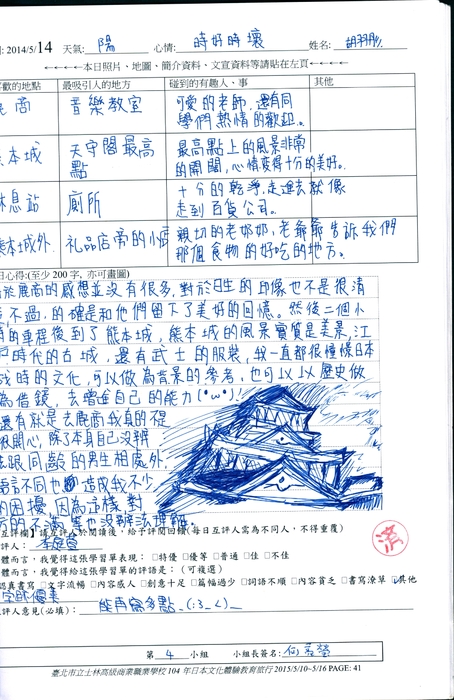 : 2014/5/14 天氣: 陽 心情: 時好時壞 姓名:
←←←←本日照片、地圖、簡介資料、文宣資料等請貼在左頁←←←←
歡的地點 最吸引人的地方 碰到的有趣人、事 其他
商 音樂教室 可愛的老師,還有同
學們熱情的歡迎。
本城 天守閣最高 最高點上的風景非常
點 的開闊,心情變得十分的美好。
休息站 廁所 十分的乾淨,走進去就像
走到百貨公司。
本城外 礼品店帝的小 親切的老奶奶,老爺爺告訴我們
那個食物的好吃的地方。
日心得:(至少 200 字,亦可畫圖)
於展商的感想並沒有很多,對於日生的印像也不是很清
不過,的確是和他們留下了美好的回憶。然後二個小
的車程後到了熊本城,熊本城的風景實質是美景,江
戶時代的古城,還有武士的服裝,我一直都很憧憬日本
戰時的文化,可以做為背景的參考,也可以以歷史做
為借鏡,去增進自己的能力(°ω°)!
還有就是去展商我真的不是
很開心,除了本身自己沒辦
法跟同齡的男生相處外,
語言不同也造成我不少
的困擾,因為這樣,對
的不滿 也沒辦法理解。
互評欄】請互評人於閱讀後,給予評閱回饋(每日互評人需為不同人,不得重覆)
評人:
體而言,我覺得這張學習單表現:□特優 □優等 □普通 □佳 □不佳
體而言,我覺得給這張學習單的評語是:(可複選)
認真書寫 □文字流暢 □內容感人 □創意十足 □篇幅過少 □詞語不順 □內容貧乏 □書寫潦草 其他
優美
評人意見(必填): 能再寫多點_(:3」∠)_
濟
第 4 小組 小組長簽名:
臺北市立士林高級商業職業學校 104 年日本文化體驗教育旅行 2015/5/10~5/16 PAGE: 41